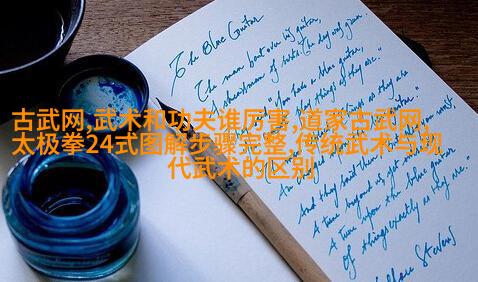 The Blue Guitar
The man bent over his guitar,
A shearsman of sorts. The day was green.
"You have a blue guitar,
things as they are."
古武网,武术和功夫谁厉害,道家古武网,
太极拳24式图解步骤完整,传统武术与现
代武术的区别
And they said
A tune beyond us, yet ourselves,
A tune upon the blue guitar
Of things exactly as they are."
Wallace Stevens